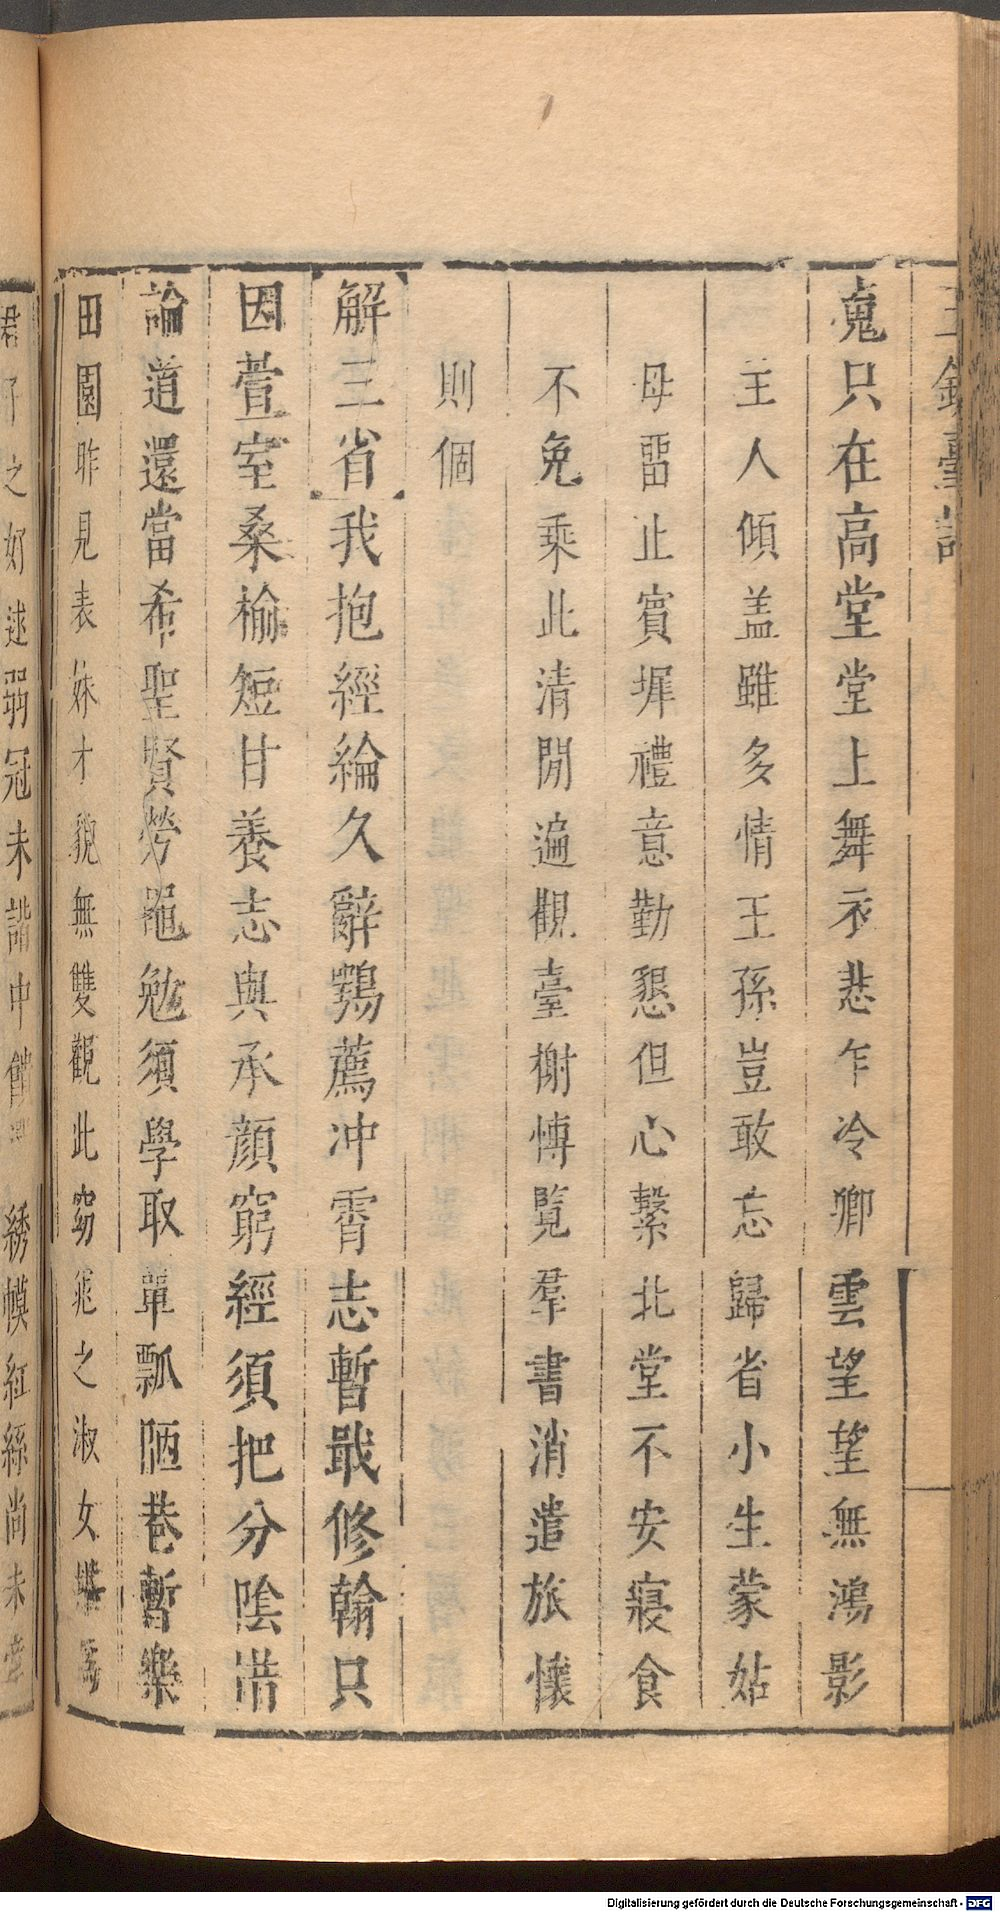 玉鏡臺記
䰟只在高堂堂上舞衣悲乍冷卿雲望望無鴻影
主人傾盖雖多情王孫豈敢忘歸省小生蒙姑
母畱止賓墀禮意勤懇但心繫北堂不安寢食
不免乘此清閒遍觀臺榭愽覽羣書消遣旅懷
則個
解三省我抱經綸久辭鶚薦冲霄志暫戢修翰只
因萱室桑榆短甘養志與承顏窮經須把分陰满
論道還當希聖賢勞黽勉須學取簞瓢陋巷暫樂
田園昨見表妹才貌無雙觀此窈窕之淑女
君子之好逑弱冠未諧中饋 綉幙紅絲尚未牽
Digitalisierung gefördert durch die Deutsche Forschungsgemeinschaft - DFG